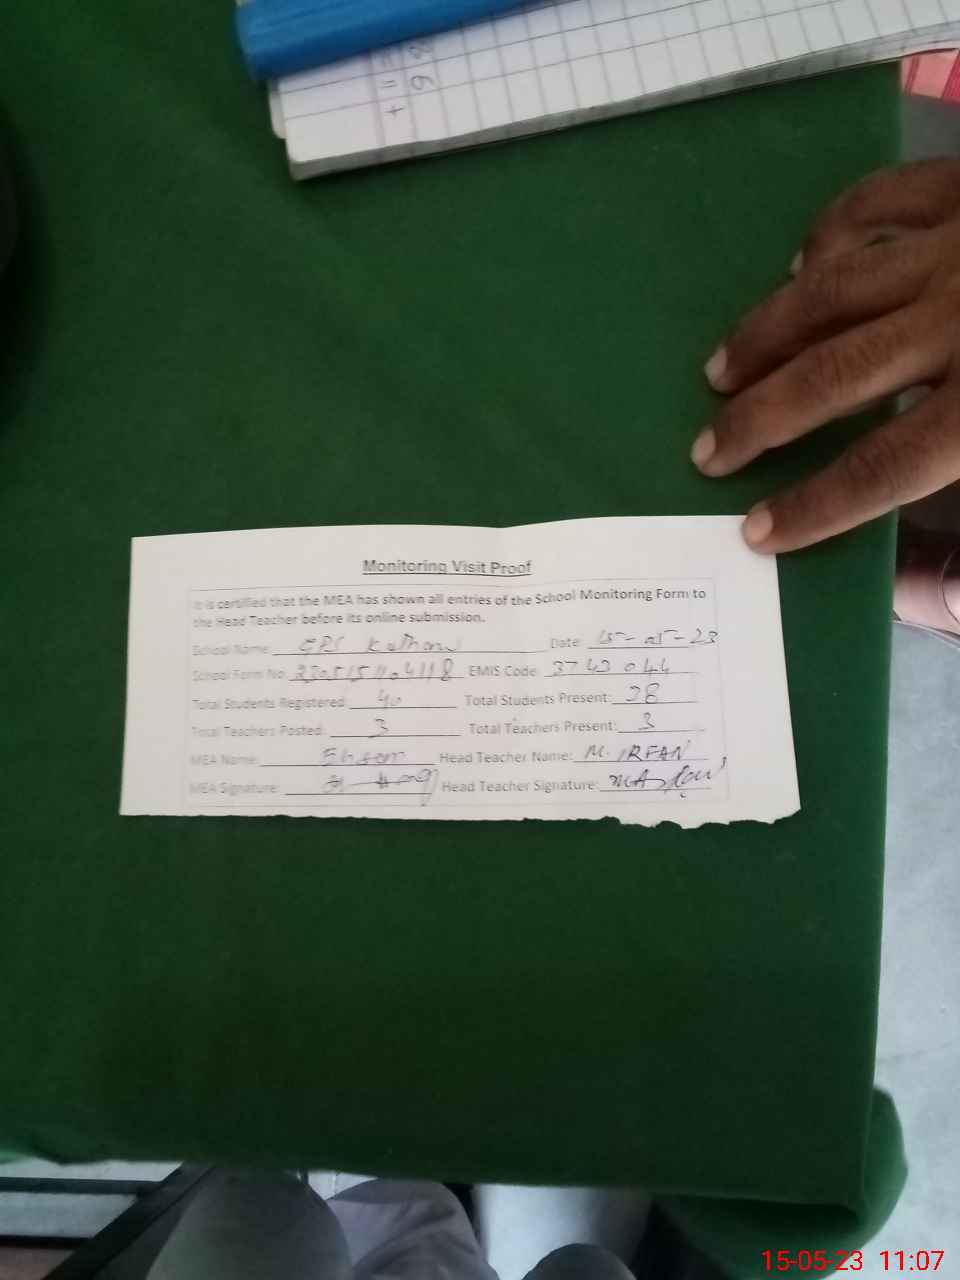 Monitoring Visit Proof
It is certified that the MEA has shown all entries of the School Monitoring Form to
the Head Teacher before its online submission.
School Name: GPS Date: 15-05-23
School Form No: EMIS Code: 3743044
Total Students Registered: 40 Total Students Present: 38
Total Teachers Posted: 3 Total Teachers Present: 3
MEA Name: Head Teacher Name: M. IRFAN
MEA Signature: Head Teacher Signature:
15-05-23 11:07